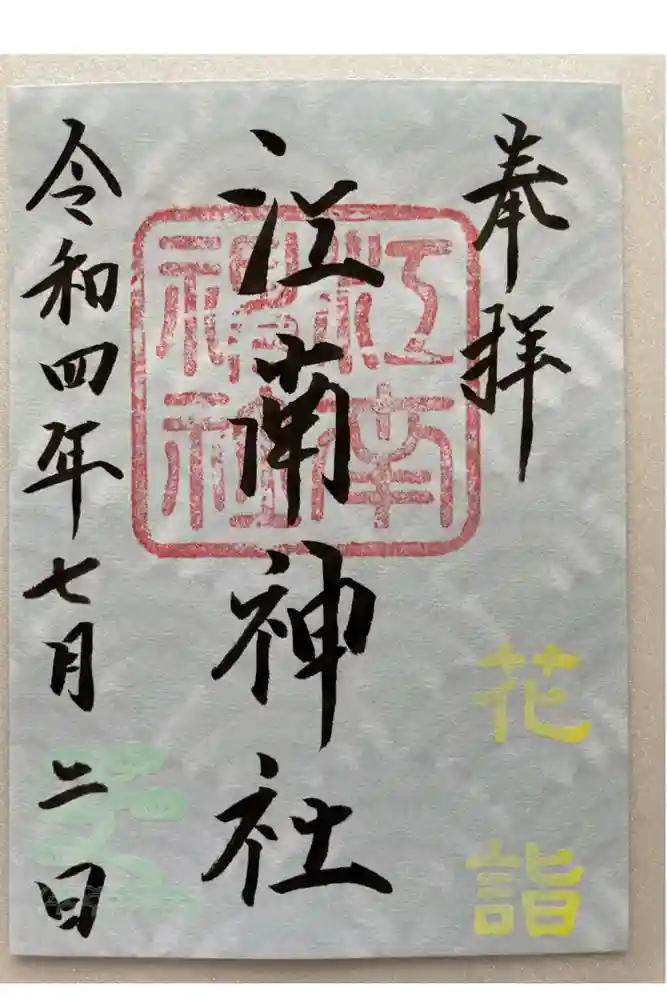 奉拝
花詣
江南神社
江南神社
令和四年七月二日